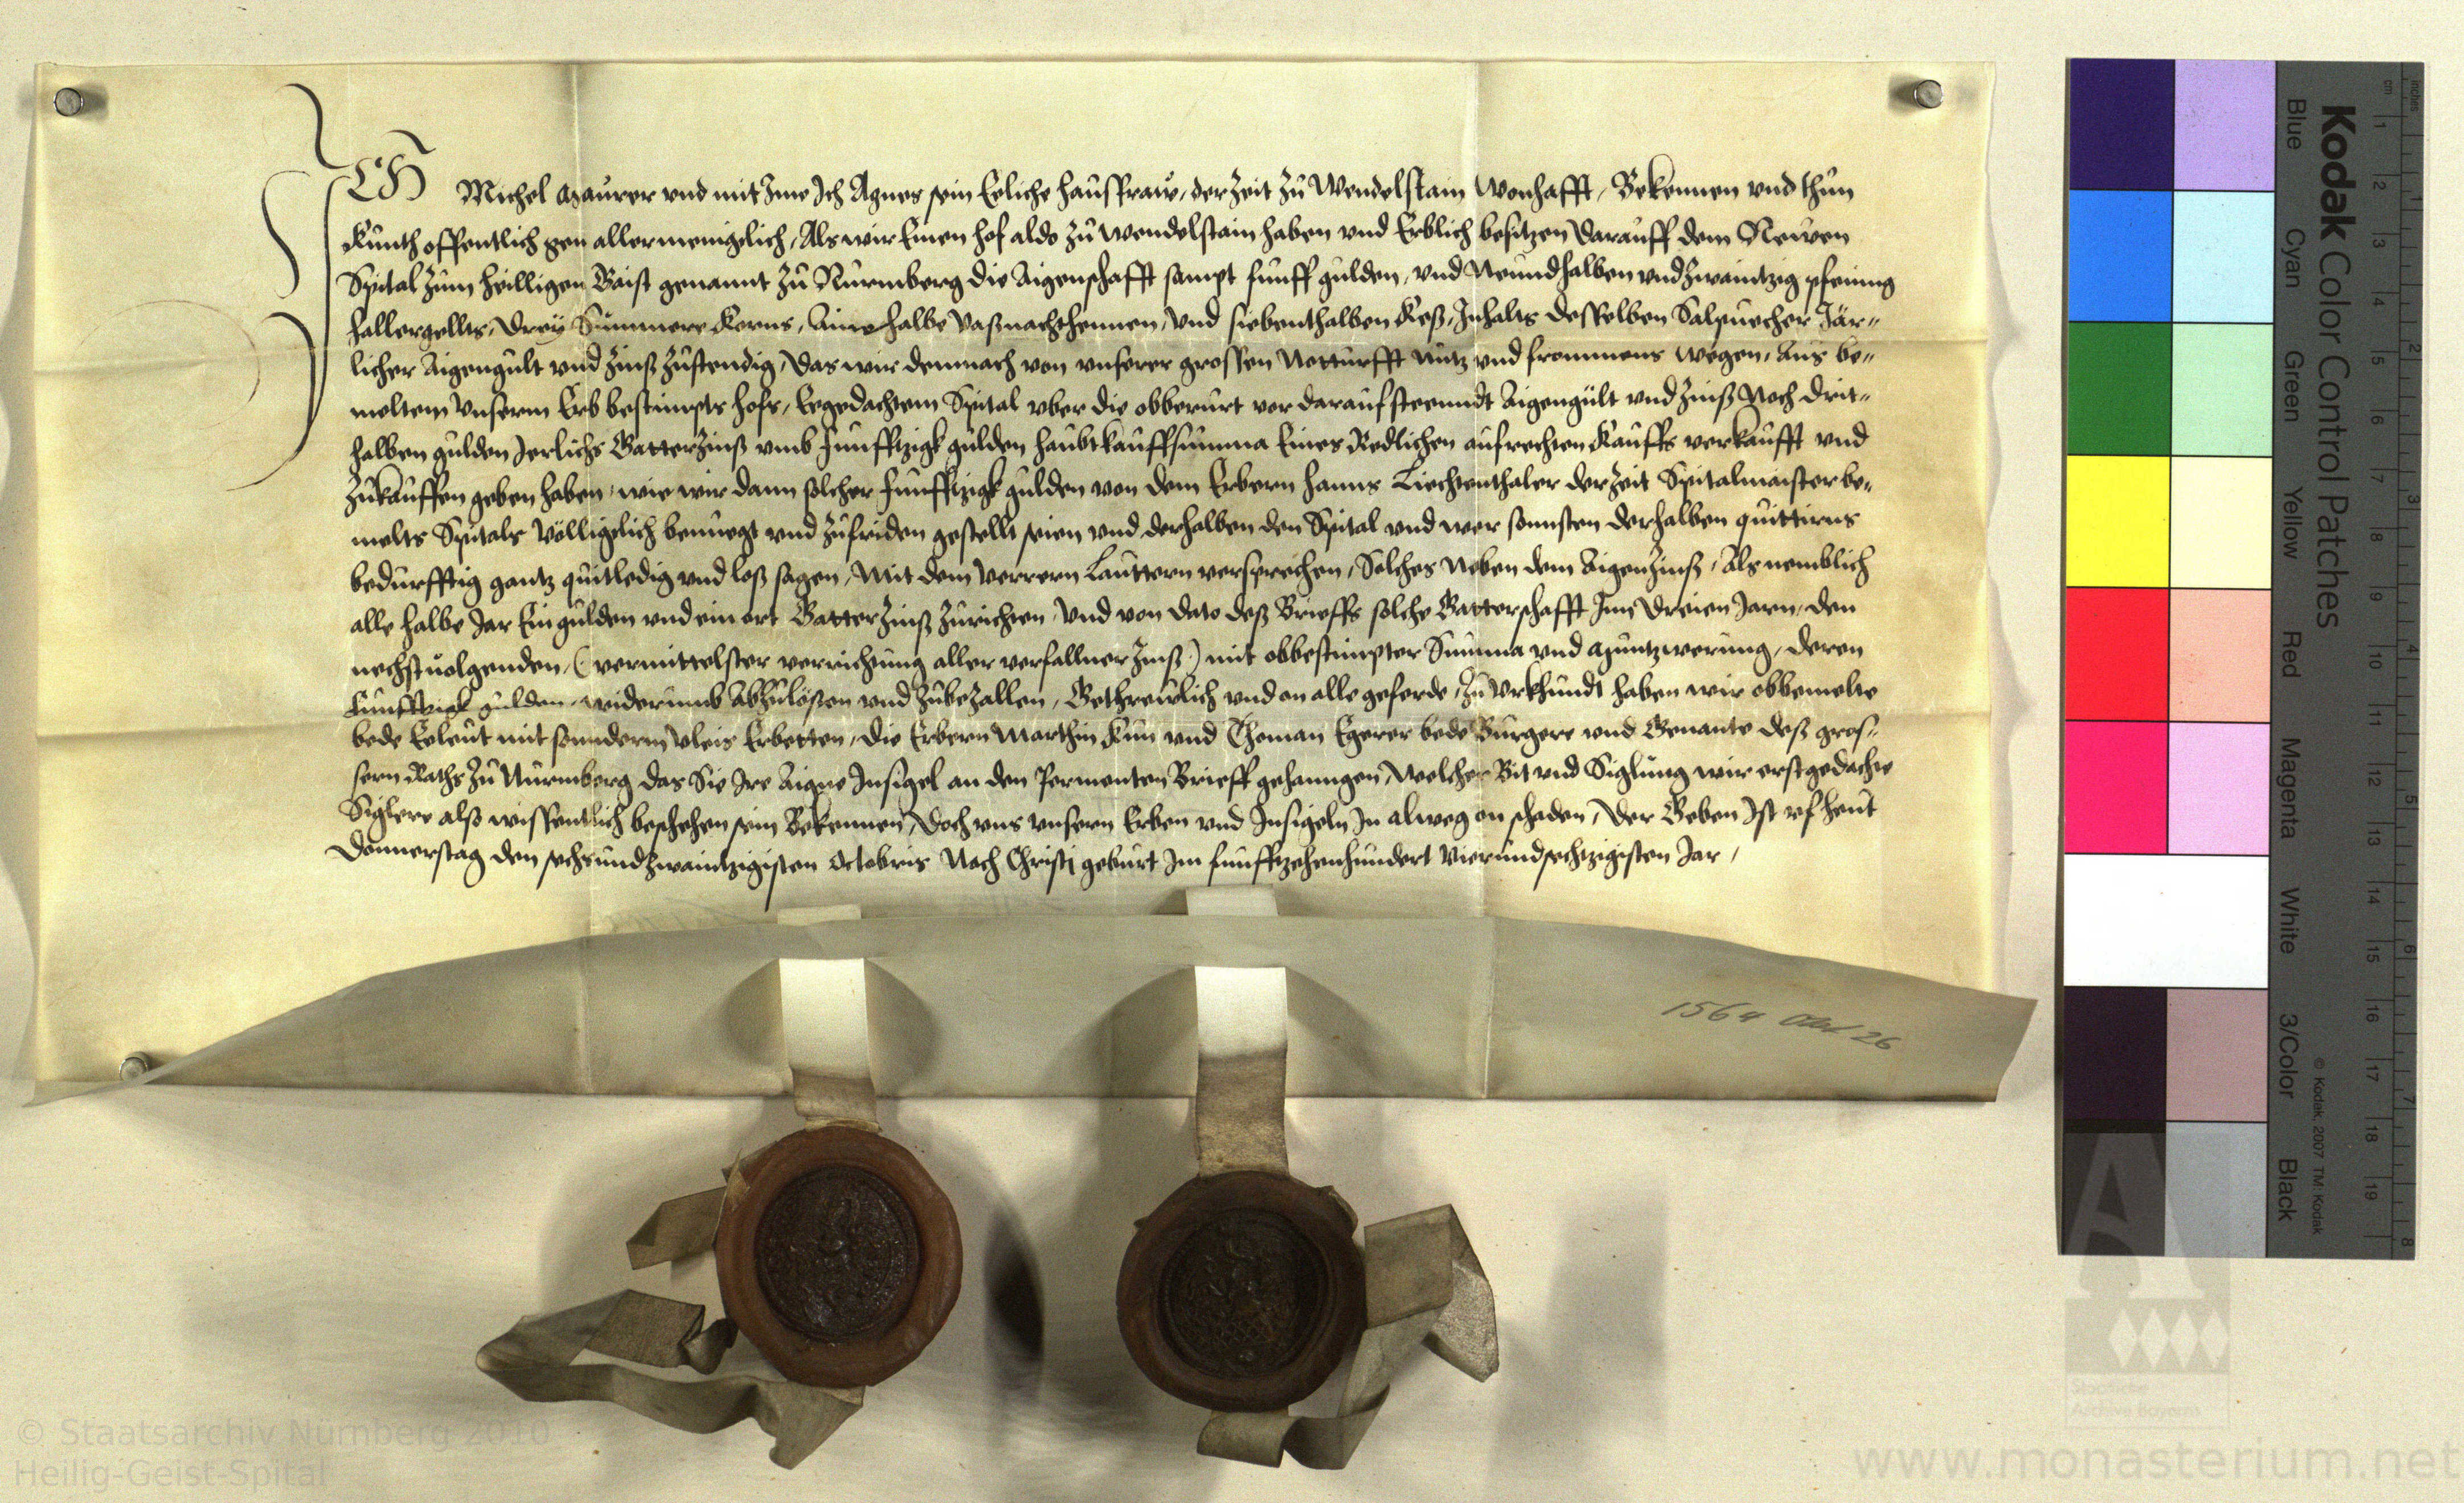 ICH Michel Maurer vnd mit Ime Ich Agnes sein Eeliche haussfraw, der Zeit zu Wendelstain Wonhafft, Bekennen vnd thun
Kunth offentlich gen allermenigelich, Als wir Einen hof aldo zu Wendelstain haben vnd Erblich besitzen darauff dem Newen
Spital zum heilligen Gaist genannt zu Nurmberg die Aigenschafft sampt funff gulden, vnd Neundhalben vnd zwaintzig pfening
hallergellts, Drey Summere Korns, Aine halbe Vaßnachthennen, vnd siebenthalben Keß, Inhalts desselben Salpuecher Jär„
licher Aigengult vnd Zinß zustendig, Das wir demnach von vnserer grossen Notturfft nutz vnd frommens wegen, Aus be„
meltem Vnserm Erb bestimpts hofs, Eegedachtem Spital vber die obberurt vor darauf steenndt Aigengült vnd Zinß Noch drit„
halben gulden Jerlichs Gatterzinß vmb funfftzigk gulden haubtkauffsumma Eines Redlichen aufrechten Kauffs verkaufft vnd
zukauffen geben haben, wie wir dann solcher funfftzigk gulden von dem Erbern hanns Liechtenthaler der Zeit Spitalmaister be„
melts Spitals Völligelich benuegt vnd zufriden gestellt seien vnd derhalben den Spital vnd wer sonnsten derhalben quittirns
bedurfftig gantz quitledig vnd loß sagen, Mit dem Verrern Lauttern versprechen, Solches Neben dem Aigenzinß, Als nemblich
alle halbe Jar Ein gulden vnd ein ort Gatterzinß zurichten, vnd von dato deß Brieffs solche Gatterschafft Inn Dreien Jarn, den
nechstuolgenden, (vermittelster verrichtung aller verfallner Zinß) mit obbestimpter Summa vnd Muntzwerung, deren
funfftzigk gulden, widerumb Abzulößen vnd zubezallen, Gethrewlich vnd on alle geferde, Zu Vrkhundt haben wir obbemelte
bede Eeleut mit sonnderm Vleis Erbetten, die Erbern Marthin Kun vnd Thoman Egerer bede Burgere vnd Genante deß gros„
sern Raths zu Nurmberg das Sie Ire Aigne Insigel an den Permenten Brieff gehanngen, Welcher Bit vnd Siglung wir erstgedachte
Siglere alß wissentlich beschehen sein Bekennen, Doch vns vnsern Erben vnd Insigeln In alweg on schaden, Der Geben Ist vf heut
Donnerstag den sechsundzwaintzigisten Octobris Nach Christi geburt Im funfftzehenhundert Vierundsechtzigisten Jar,
1564 Okt 26
Kodak Color Control Patches
Blue Cyan Green Yellow Red Magenta White 3/Color Black
© Kodak, 2007 TM: Kodak
cm 1 2 3 4 5 6 7 8 9 10 11 12 13 14 15 16 17 18 19
inches 1 2 3 4 5 6 7 8
Staatliche
Archive Bayerns
© Staatsarchiv Nürnberg 2010
Heilig-Geist-Spital
www.monasterium.net